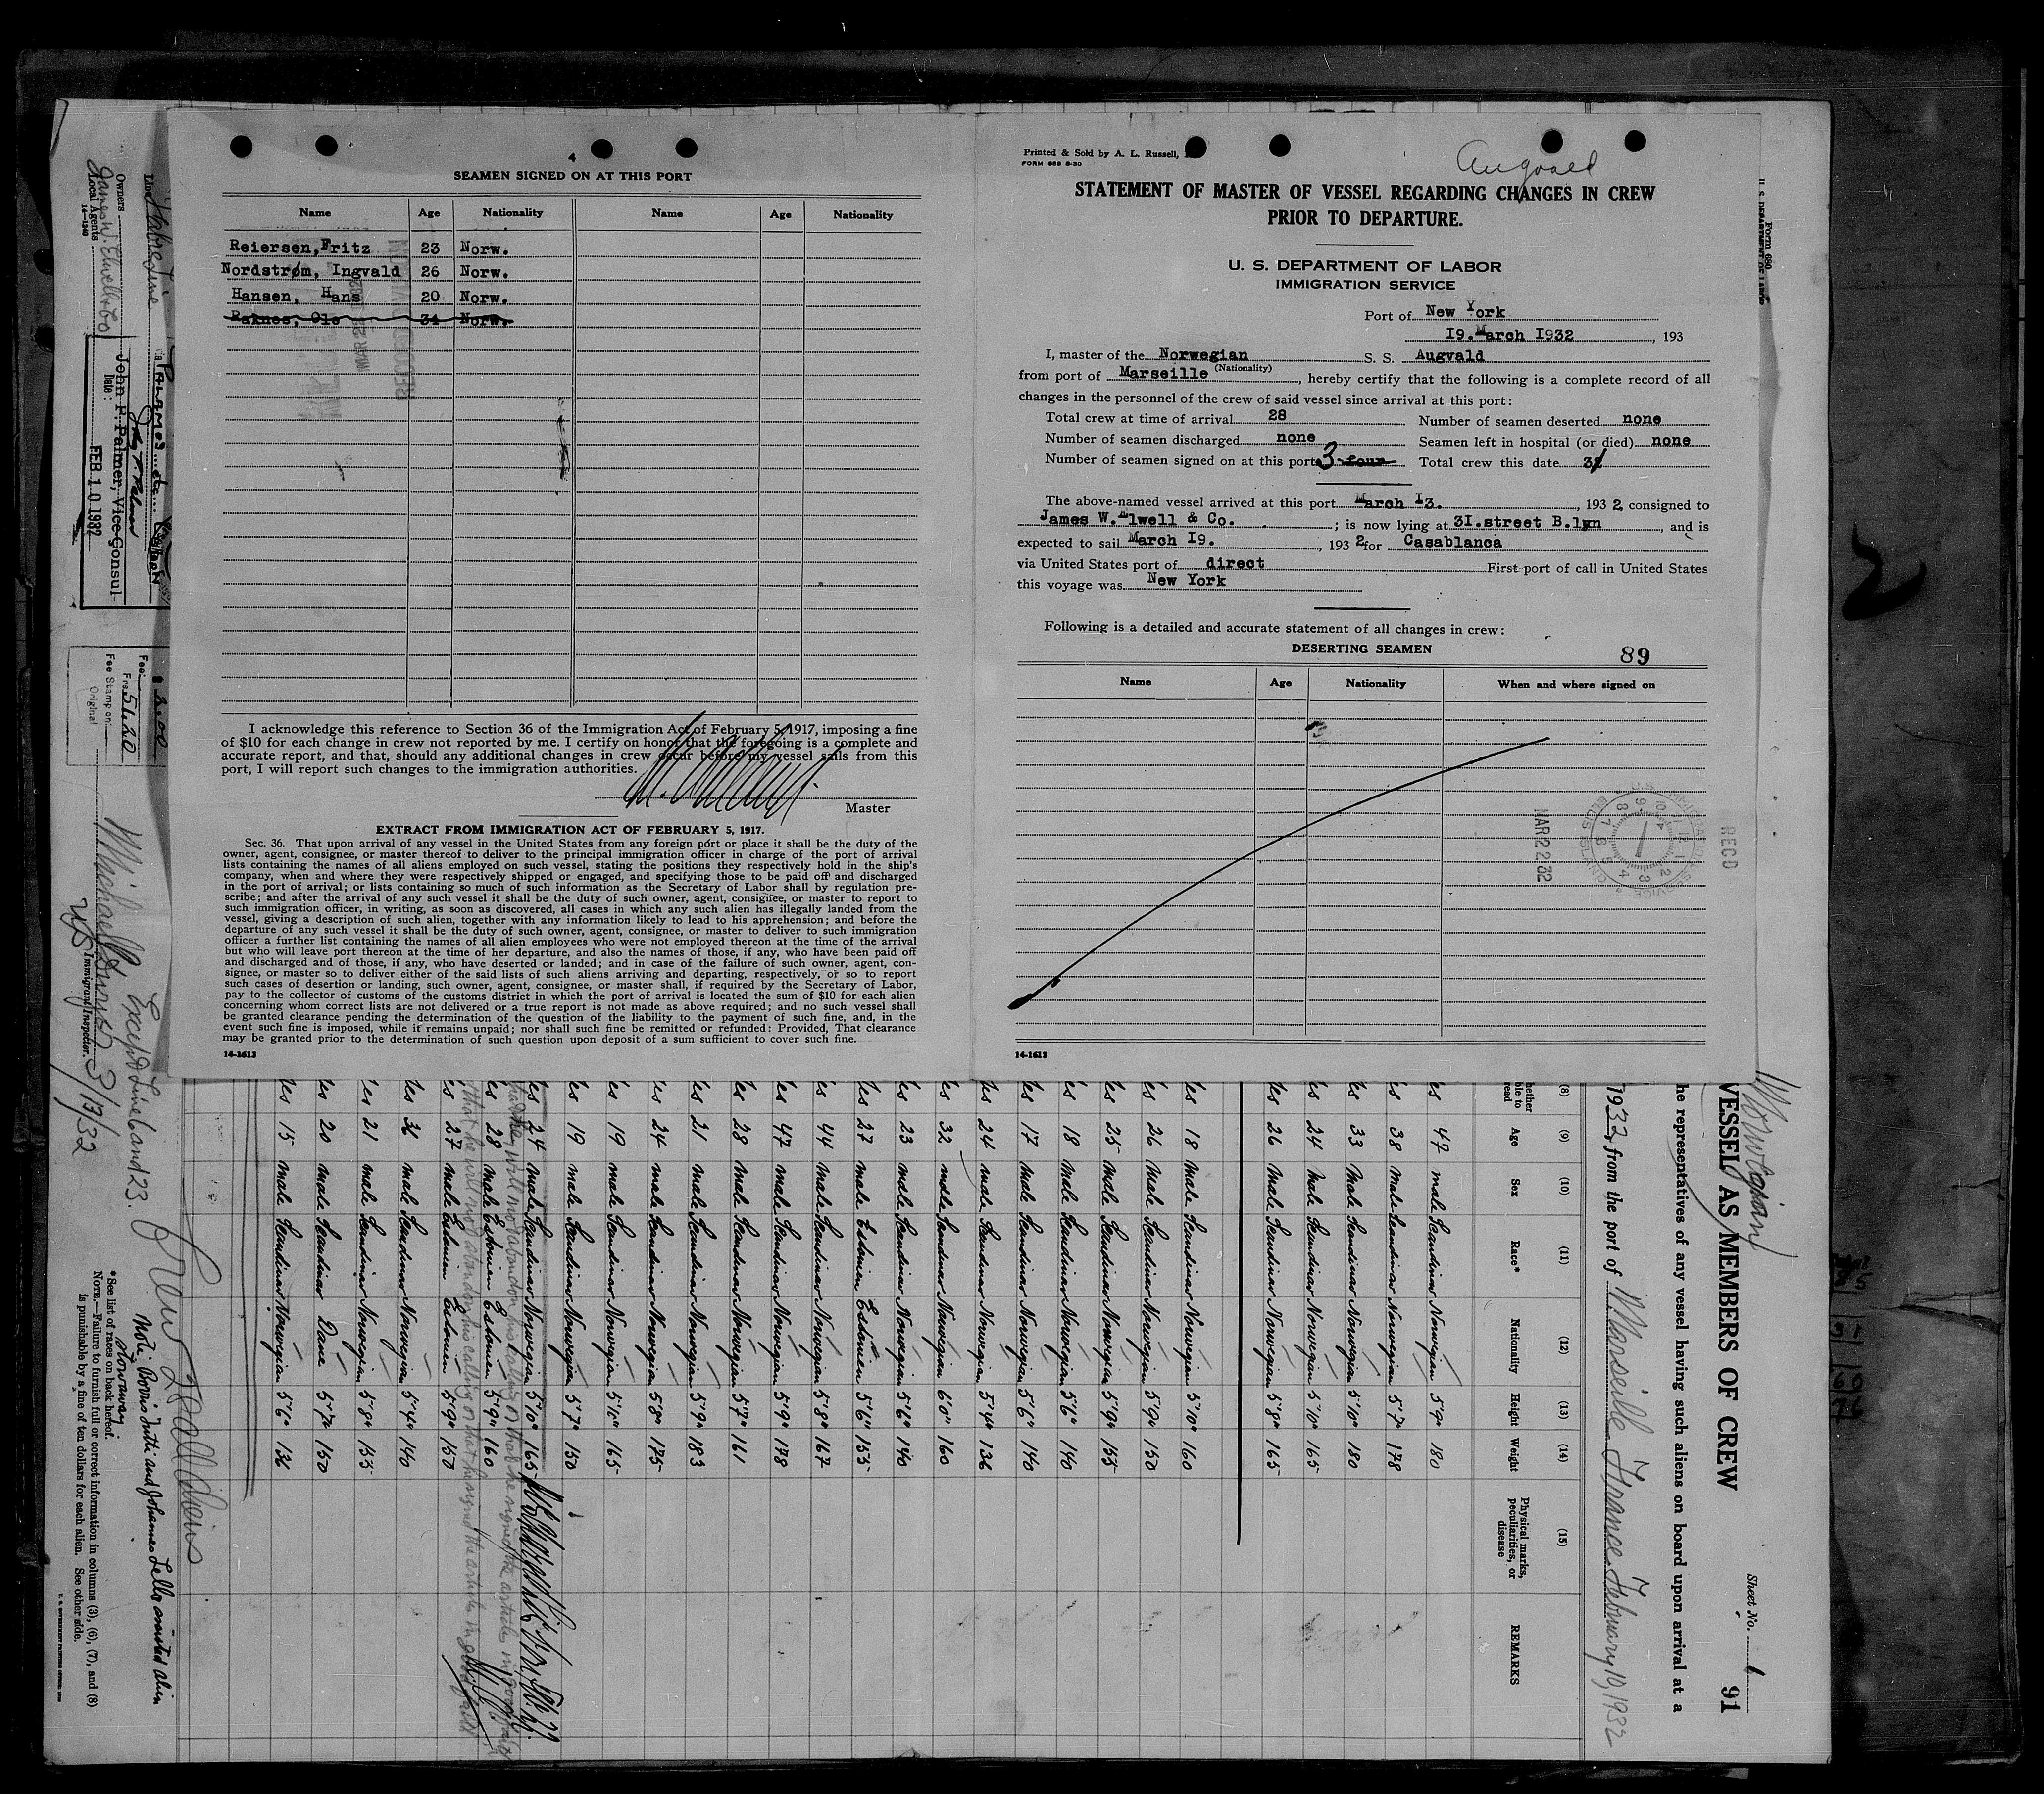 4
SEAMEN SIGNED ON AT THIS PORT
Name Age Nationality Name Age Nationality
Reiersen, Fritz 23 Norw.
Nordstrøm, Ingvald 26 Norw.
Hansen, Hans 20 Norw.
Raknes, Ole 34 Norw.
I acknowledge this reference to Section 36 of the Immigration Act of February 5, 1917, imposing a fine
of $10 for each change in crew not reported by me. I certify on honor that the foregoing is a complete and
accurate report, and that, should any additional changes in crew occur before my vessel sails from this
port, I will report such changes to the immigration authorities.
Master
EXTRACT FROM IMMIGRATION ACT OF FEBRUARY 5, 1917.
Sec. 36. That upon arrival of any vessel in the United States from any foreign port or place it shall be the duty of the
owner, agent, consignee, or master thereof to deliver to the principal immigration officer in charge of the port of arrival
lists containing the names of all aliens employed on such vessel, stating the positions they respectively hold in the ship's
company, when and where they were respectively shipped or engaged, and specifying those to be paid off and discharged
in the port of arrival; or lists containing so much of such information as the Secretary of Labor shall by regulation pre-
scribe; and after the arrival of any such vessel it shall be the duty of such owner, agent, consignee, or master to report to
such immigration officer, in writing, as soon as discovered, all cases in which any such alien has illegally landed from the
vessel, giving a description of such alien, together with any information likely to lead to his apprehension; and before the
departure of any such vessel it shall be the duty of such owner, agent, consignee, or master to deliver to such immigration
officer a further list containing the names of all alien employees who were not employed thereon at the time of the arrival
but who will leave port thereon at the time of her departure, and also the names of those, if any, who have been paid off
and discharged and of those, if any, who have deserted or landed; and in case of the failure of such owner, agent, con-
signee, or master so to deliver either of the said lists of such aliens arriving and departing, respectively, or so to report
such cases of desertion or landing, such owner, agent, consignee, or master shall, if required by the Secretary of Labor,
pay to the collector of customs of the customs district in which the port of arrival is located the sum of $10 for each alien
concerning whom correct lists are not delivered or a true report is not made as above required; and no such vessel shall
be granted clearance pending the determination of the question of the liability to the payment of such fine, and, in the
event such fine is imposed, while it remains unpaid; nor shall such fine be remitted or refunded: Provided, That clearance
may be granted prior to the determination of such question upon deposit of a sum sufficient to cover such fine.
14-1613
Printed & Sold by A. L. Russell,
FORM 689 8-30
Augvald
STATEMENT OF MASTER OF VESSEL REGARDING CHANGES IN CREW
PRIOR TO DEPARTURE.
U. S. DEPARTMENT OF LABOR
IMMIGRATION SERVICE
Port of New York
19. March 1932, 193
I, master of the Norwegian S. S. Augvald
(Nationality)
from port of Marseille, hereby certify that the following is a complete record of all
changes in the personnel of the crew of said vessel since arrival at this port:
Total crew at time of arrival 28 Number of seamen deserted none
Number of seamen discharged none Seamen left in hospital (or died) none
Number of seamen signed on at this port 3 four Total crew this date 31
The above-named vessel arrived at this port March 13., 1932, consigned to
James W. Elwell & Co.; is now lying at 31.street B.lyn, and is
expected to sail March 19., 1932 for Casablanca
via United States port of direct First port of call in United States
this voyage was New York
Following is a detailed and accurate statement of all changes in crew:
DESERTING SEAMEN
89
Name Age Nationality When and where signed on
MAR 22 32
RECD
14-1613
Form 680
Norwegian
Sheet No.
91
VESSEL AS MEMBERS OF CREW
he representatives of any vessel having such aliens on board upon arrival at a
1932, from the port of Marseille, France, February 10, 1932
(8) (9) (10) (11) (12) (13) (14) (15)
Age Sex Race* Nationality Height Weight Physical marks, peculiarities, or disease REMARKS
47 male Scandinav Norwegian 5'9" 180
38 male Scandinav Norwegian 5'7" 178
33 male Scandinav Norwegian 5'10" 180
24 male Scandinav Norwegian 5'10" 165
26 male Scandinav Norwegian 5'8" 165
18 male Scandinav Norwegian 5'10" 160
26 male Scandinav Norwegian 5'9" 150
25 male Scandinav Norwegian 5'9" 155
18 male Scandinav Norwegian 5'6" 140
17 male Scandinav Norwegian 5'6" 140
24 male Scandinav Norwegian 5'4" 136
32 male Scandinav Norwegian 6'0" 160
23 male Scandinav Norwegian 5'6" 140
27 male Estonien Estonien 5'6" 155
44 male Scandinav Norwegian 5'8" 167
47 male Scandinav Norwegian 5'9" 178
28 male Scandinav Norwegian 5'7" 161
21 male Scandinav Norwegian 5'9" 183
24 male Scandinav Norwegian 5'8" 175
19 male Scandinav Norwegian 5'10" 165
19 male Scandinav Norwegian 5'7" 150
24 male Scandinav Norwegian 5'10" 165
28 male Estonien Estonien 5'9" 160
27 male Estonien Estonien 5'9" 150
36 male Scandinav Norwegian 5'4" 140
21 male Scandinav Norwegian 5'8" 155
20 male Scandinav Dane 5'7" 150
15 male Scandinav Norwegian 5'6" 136
Line Fabre Line
Owners
James W. Elwell & Co
Local Agents
14-1240
John P. Palmer, Vice Consul
Date: FEB 10 1932
Fee: $ 2.00
Frs. 54.20
Fee Stamp on
Original
Except Line 6 and 23.
3/13/32
Immigrant Inspector.
*See list of races on back hereof.
NOTE.—Failure to furnish full or correct information in columns (3), (6), (7), and (8)
is punishable by a fine of ten dollars for each alien. See other side.